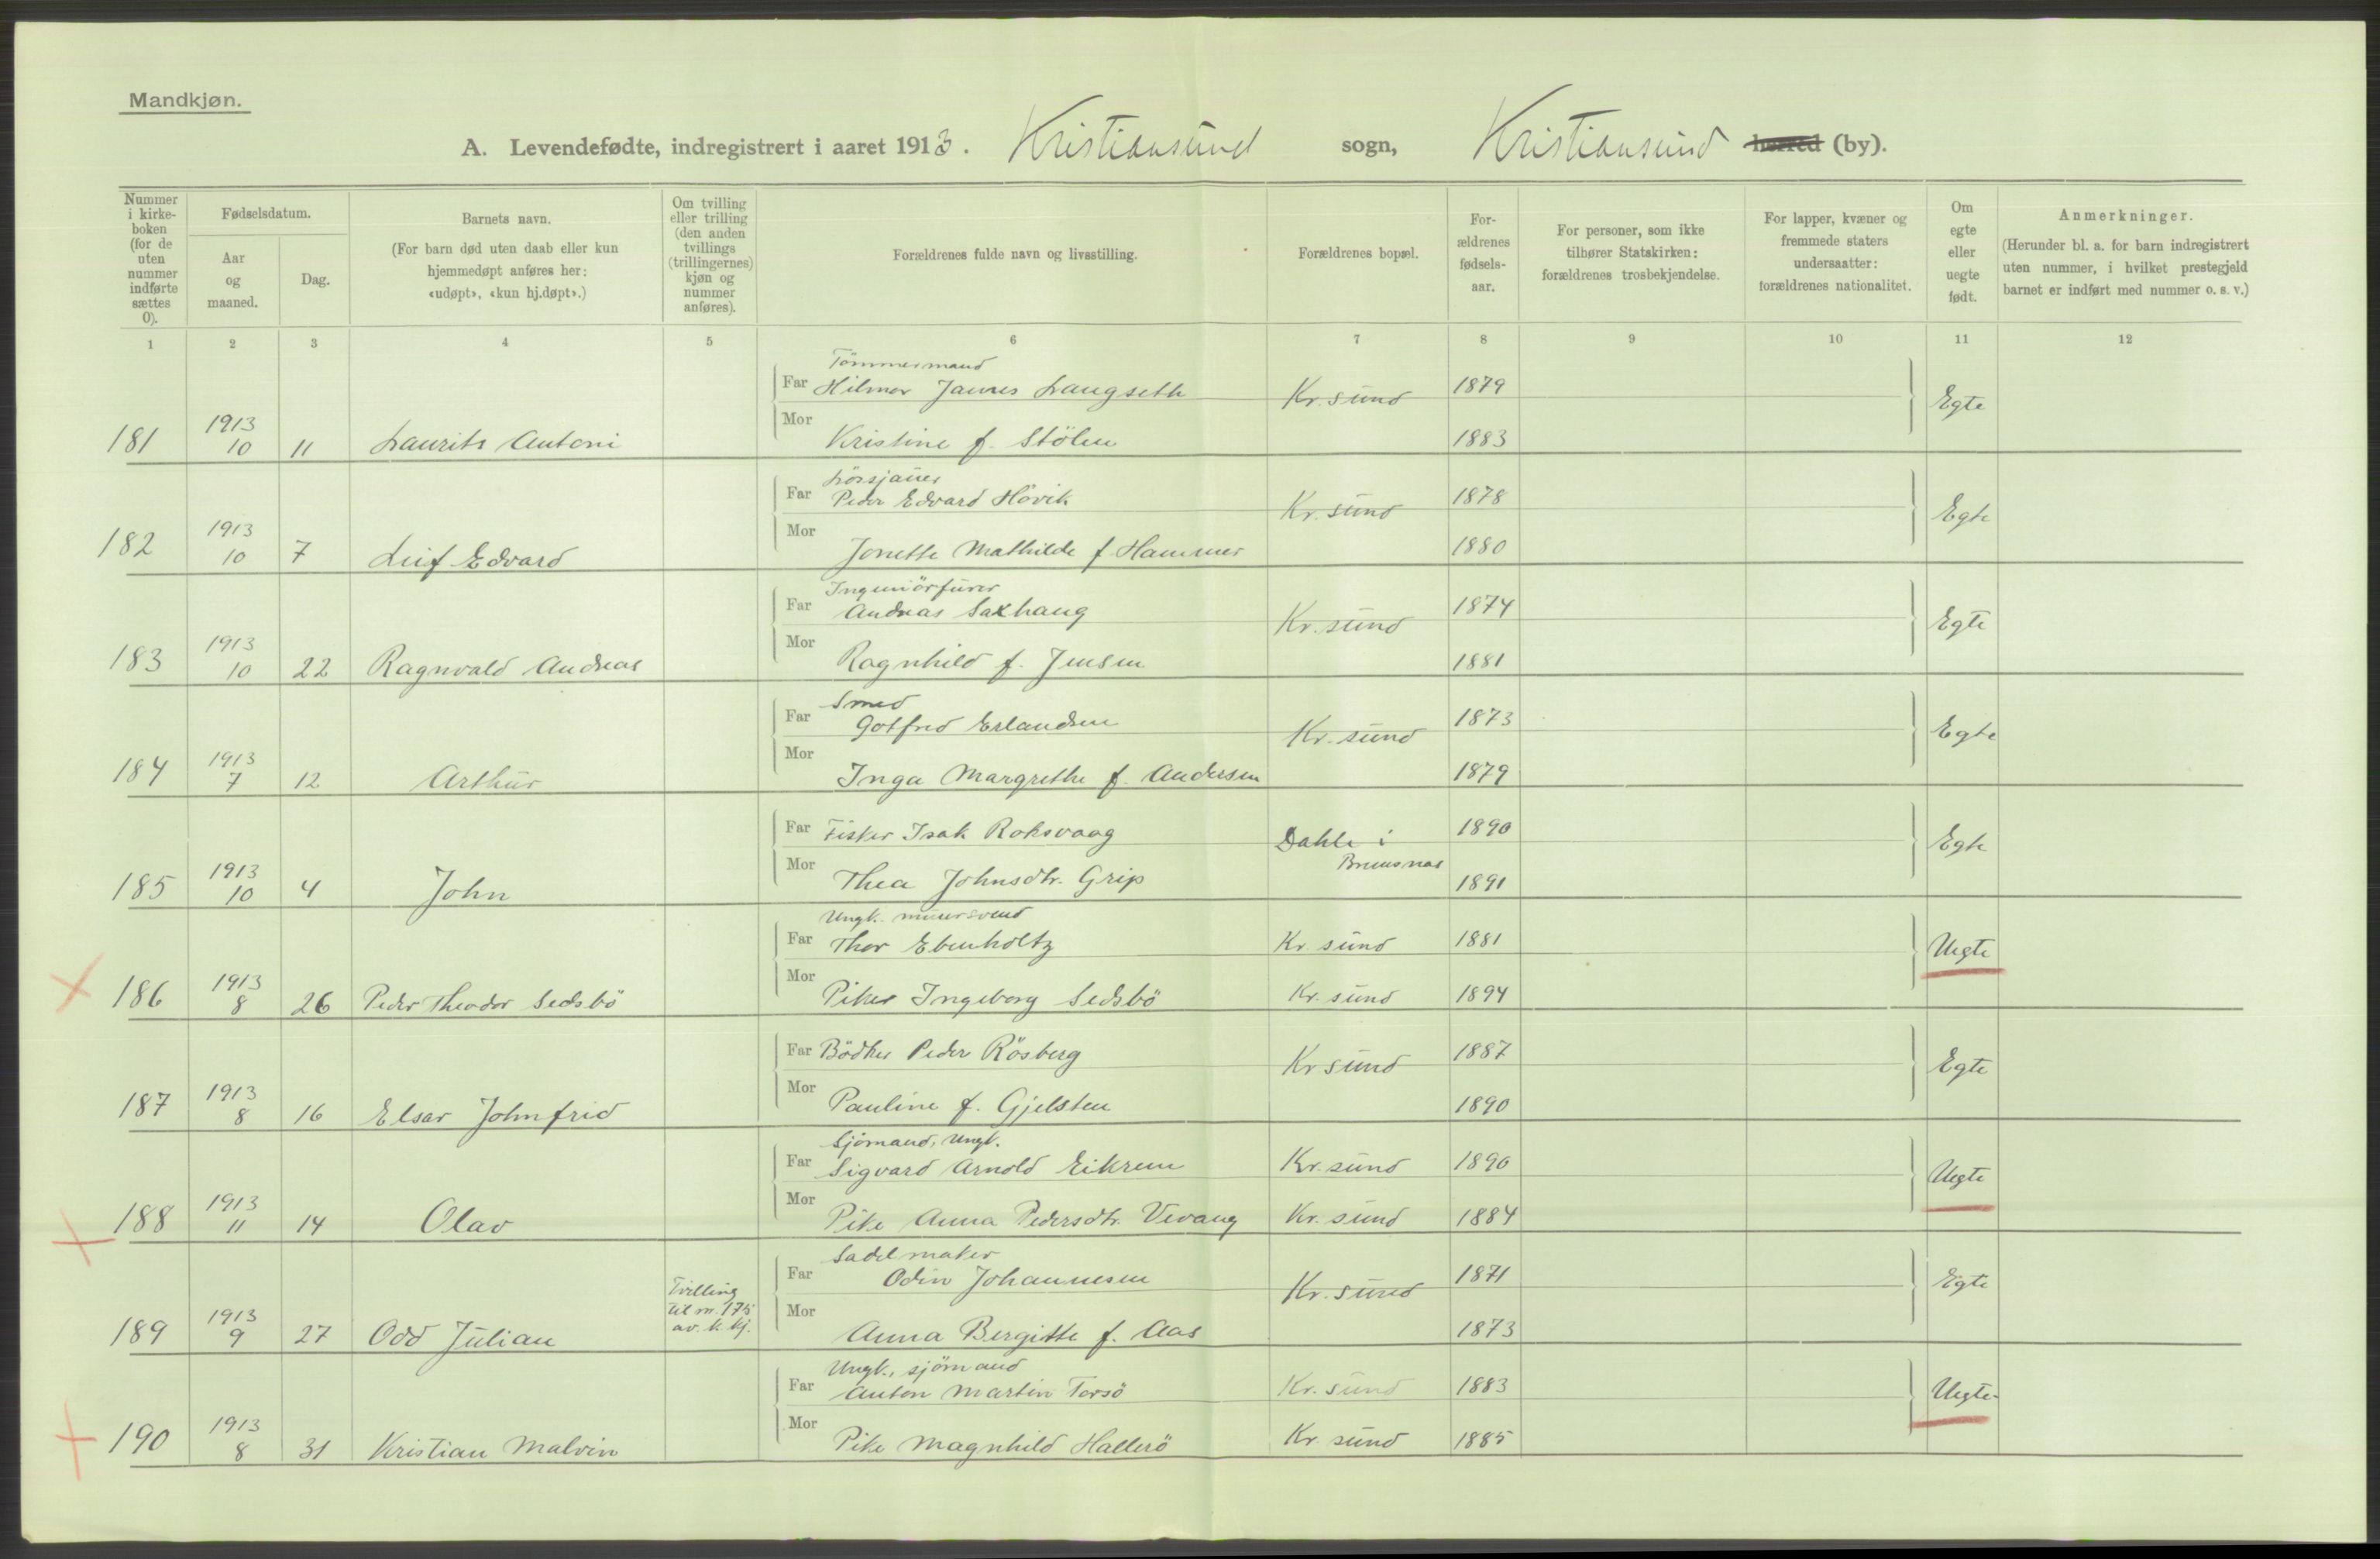 Mandkjøn.
A. Levendefødte, indregistrert i aaret 1913. Kristiansund sogn, Kristiansund herred (by).
Nummer i kirke-boken (for de uten nummer indførte sættes 0).
Fødselsdatum.
Aar og maaned.
Dag.
Barnets navn.
(For barn død uten daab eller kun hjemmedøpt anføres her: «udøpt», «kun hj.døpt».)
Om tvilling eller trilling (den anden tvillings (trillingernes) kjøn og nummer anføres).
Forældrenes fulde navn og livsstilling.
Forældrenes bopæl.
For-ældrenes fødsels-aar.
For personer, som ikke tilhører Statskirken: forældrenes trosbekjendelse.
For lapper, kvæner og fremmede staters undersaatter: forældrenes nationalitet.
Om egte eller uegte født.
Anmerkninger.
(Herunder bl. a. for barn indregistrert uten nummer, i hvilket prestegjeld barnet er indført med nummer o. s. v.)
1 2 3 4 5 6 7 8 9 10 11 12
Tömmermand
Far Hilmar James Langseth Kr. sund 1879 Egte
181 1913 10 11 Laurits Antoni
Mor Kristine f. Stölen 1883
Far Peder Edvard Hövik Kr. sund 1878 Egte
182 1913 10 7 Leif Edvard
Mor Jonette Mathilde f. Hammer 1880
Far Andreas Saxhaug Kr. sund 1874 Egte
183 1913 10 22 Ragnvald Andreas
Mor Ragnhild f. Jensen 1881
Smed
Far Gotfred Erlandsen Kr. sund 1873 Egte
184 1913 7 12 Arthur
Mor Inga Margrethe f. Andersen 1879
Far Fisker Isak Roksvaag Dahle i Bremsnes 1890 Egte
185 1913 10 4 John
Mor Thea Johnsdtr. Grip 1891
Ungk. murersvend
Far Thor Ebenholtz Kr. sund 1881 Uegte
186 1913 8 26 Peder Theodor Sedsbö
Mor Piken Ingeborg Sedsbö Kr. sund 1894
Far Bödker Peder Rösberg Kr sund 1887 Egte
187 1913 8 16 Elsar Johnfrid
Mor Pauline f. Gjelsten 1890
Sjömand, Ungk.
Far Sigvard Arnold Eikrem Kr. sund 1890 Uegte
188 1913 11 14 Olav
Mor Pike Anna Pedersdtr. Vevang Kr. sund 1884
Sadelmaker
Far Odin Johannesen Kr. sund 1871 Egte
189 1913 9 27 Odd Julian Tvilling til nr. 175 av k. kj.
Mor Anna Bergitte f. Aas 1873
Ungk., sjömand
Far Anton Martin Torsö Kr. sund 1883 Uegte
190 1913 8 31 Kristian Malvin
Mor Pike Magnhild Hallerö Kr. sund 1885